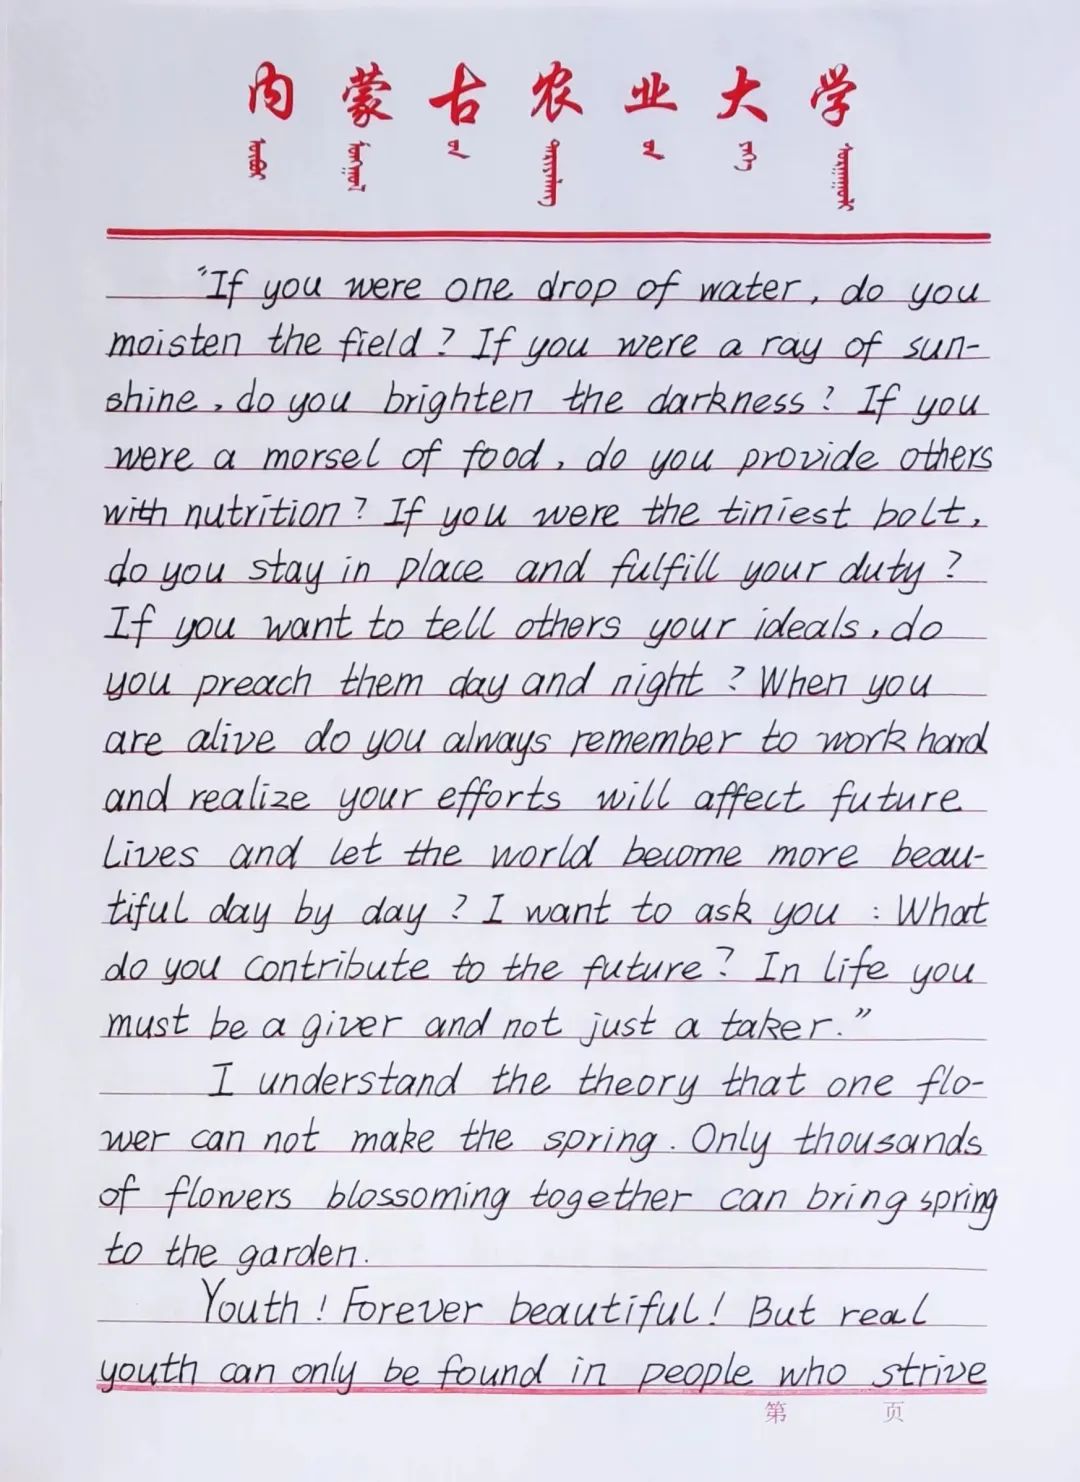 内蒙古农业大学
"If you were one drop of water, do you
moisten the field? If you were a ray of sun-
shine, do you brighten the darkness? If you
were a morsel of food, do you provide others
with nutrition? If you were the tiniest bolt,
do you stay in place and fulfill your duty?
If you want to tell others your ideals, do
you preach them day and night? When you
are alive do you always remember to work hard
and realize your efforts will affect future
lives and let the world become more beau-
tiful day by day? I want to ask you: What
do you contribute to the future? In life you
must be a giver and not just a taker."
I understand the theory that one flo-
wer can not make the spring. Only thousands
of flowers blossoming together can bring spring
to the garden.
Youth! Forever beautiful! But real
youth can only be found in people who strive
第 页